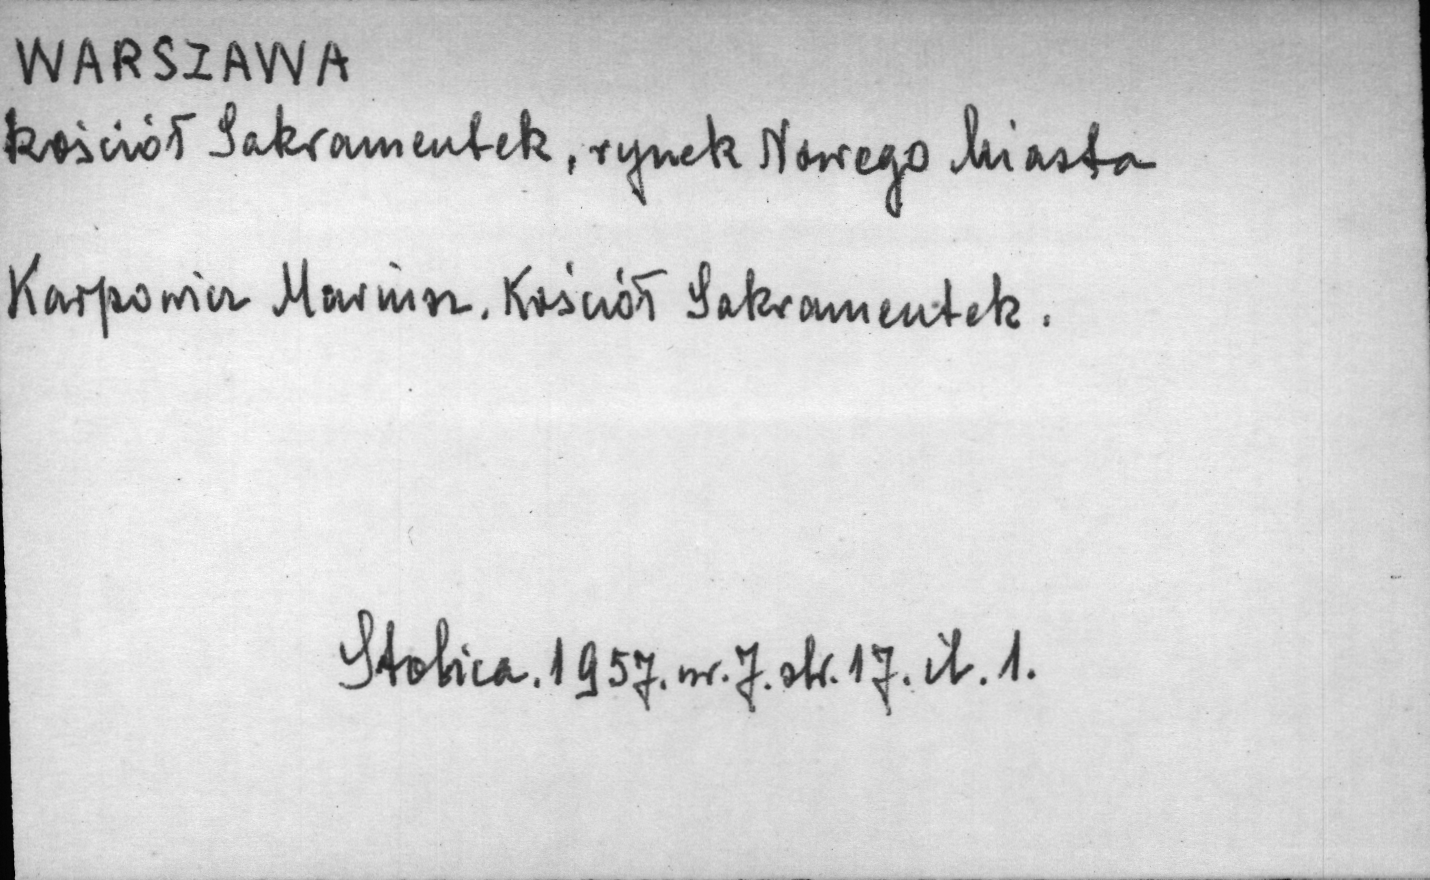 WARSZAWA
kościół Sakramentek, rynek Nowego Miasta
Karpowicz Mariusz. Kościół Sakramentek.
Stolica. 1957. nr. 7. str. 17. il. 1.